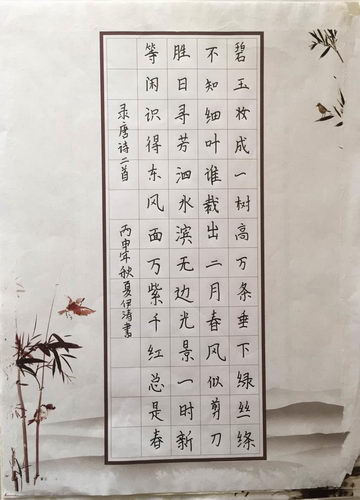 碧玉妆成一树高万条垂下绿丝绦
不知细叶谁裁出二月春风似剪刀
胜日寻芳泗水滨无边光景一时新
等闲识得东风面万紫千红总是春
录唐诗二首
丙申年秋夏伊涛书